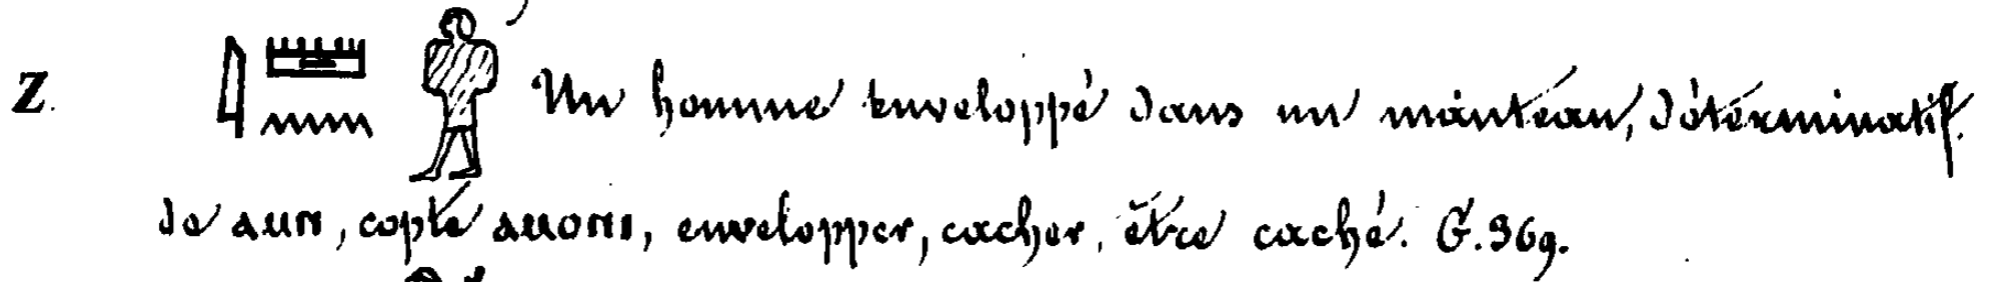 Z. 𓇋𓏠𓈖 Un homme enveloppé dans un manteau, déterminatif
de ⲁⲙⲛ, copte ⲁⲙⲟⲛⲓ, envelopper, cacher, être caché. G. 369.